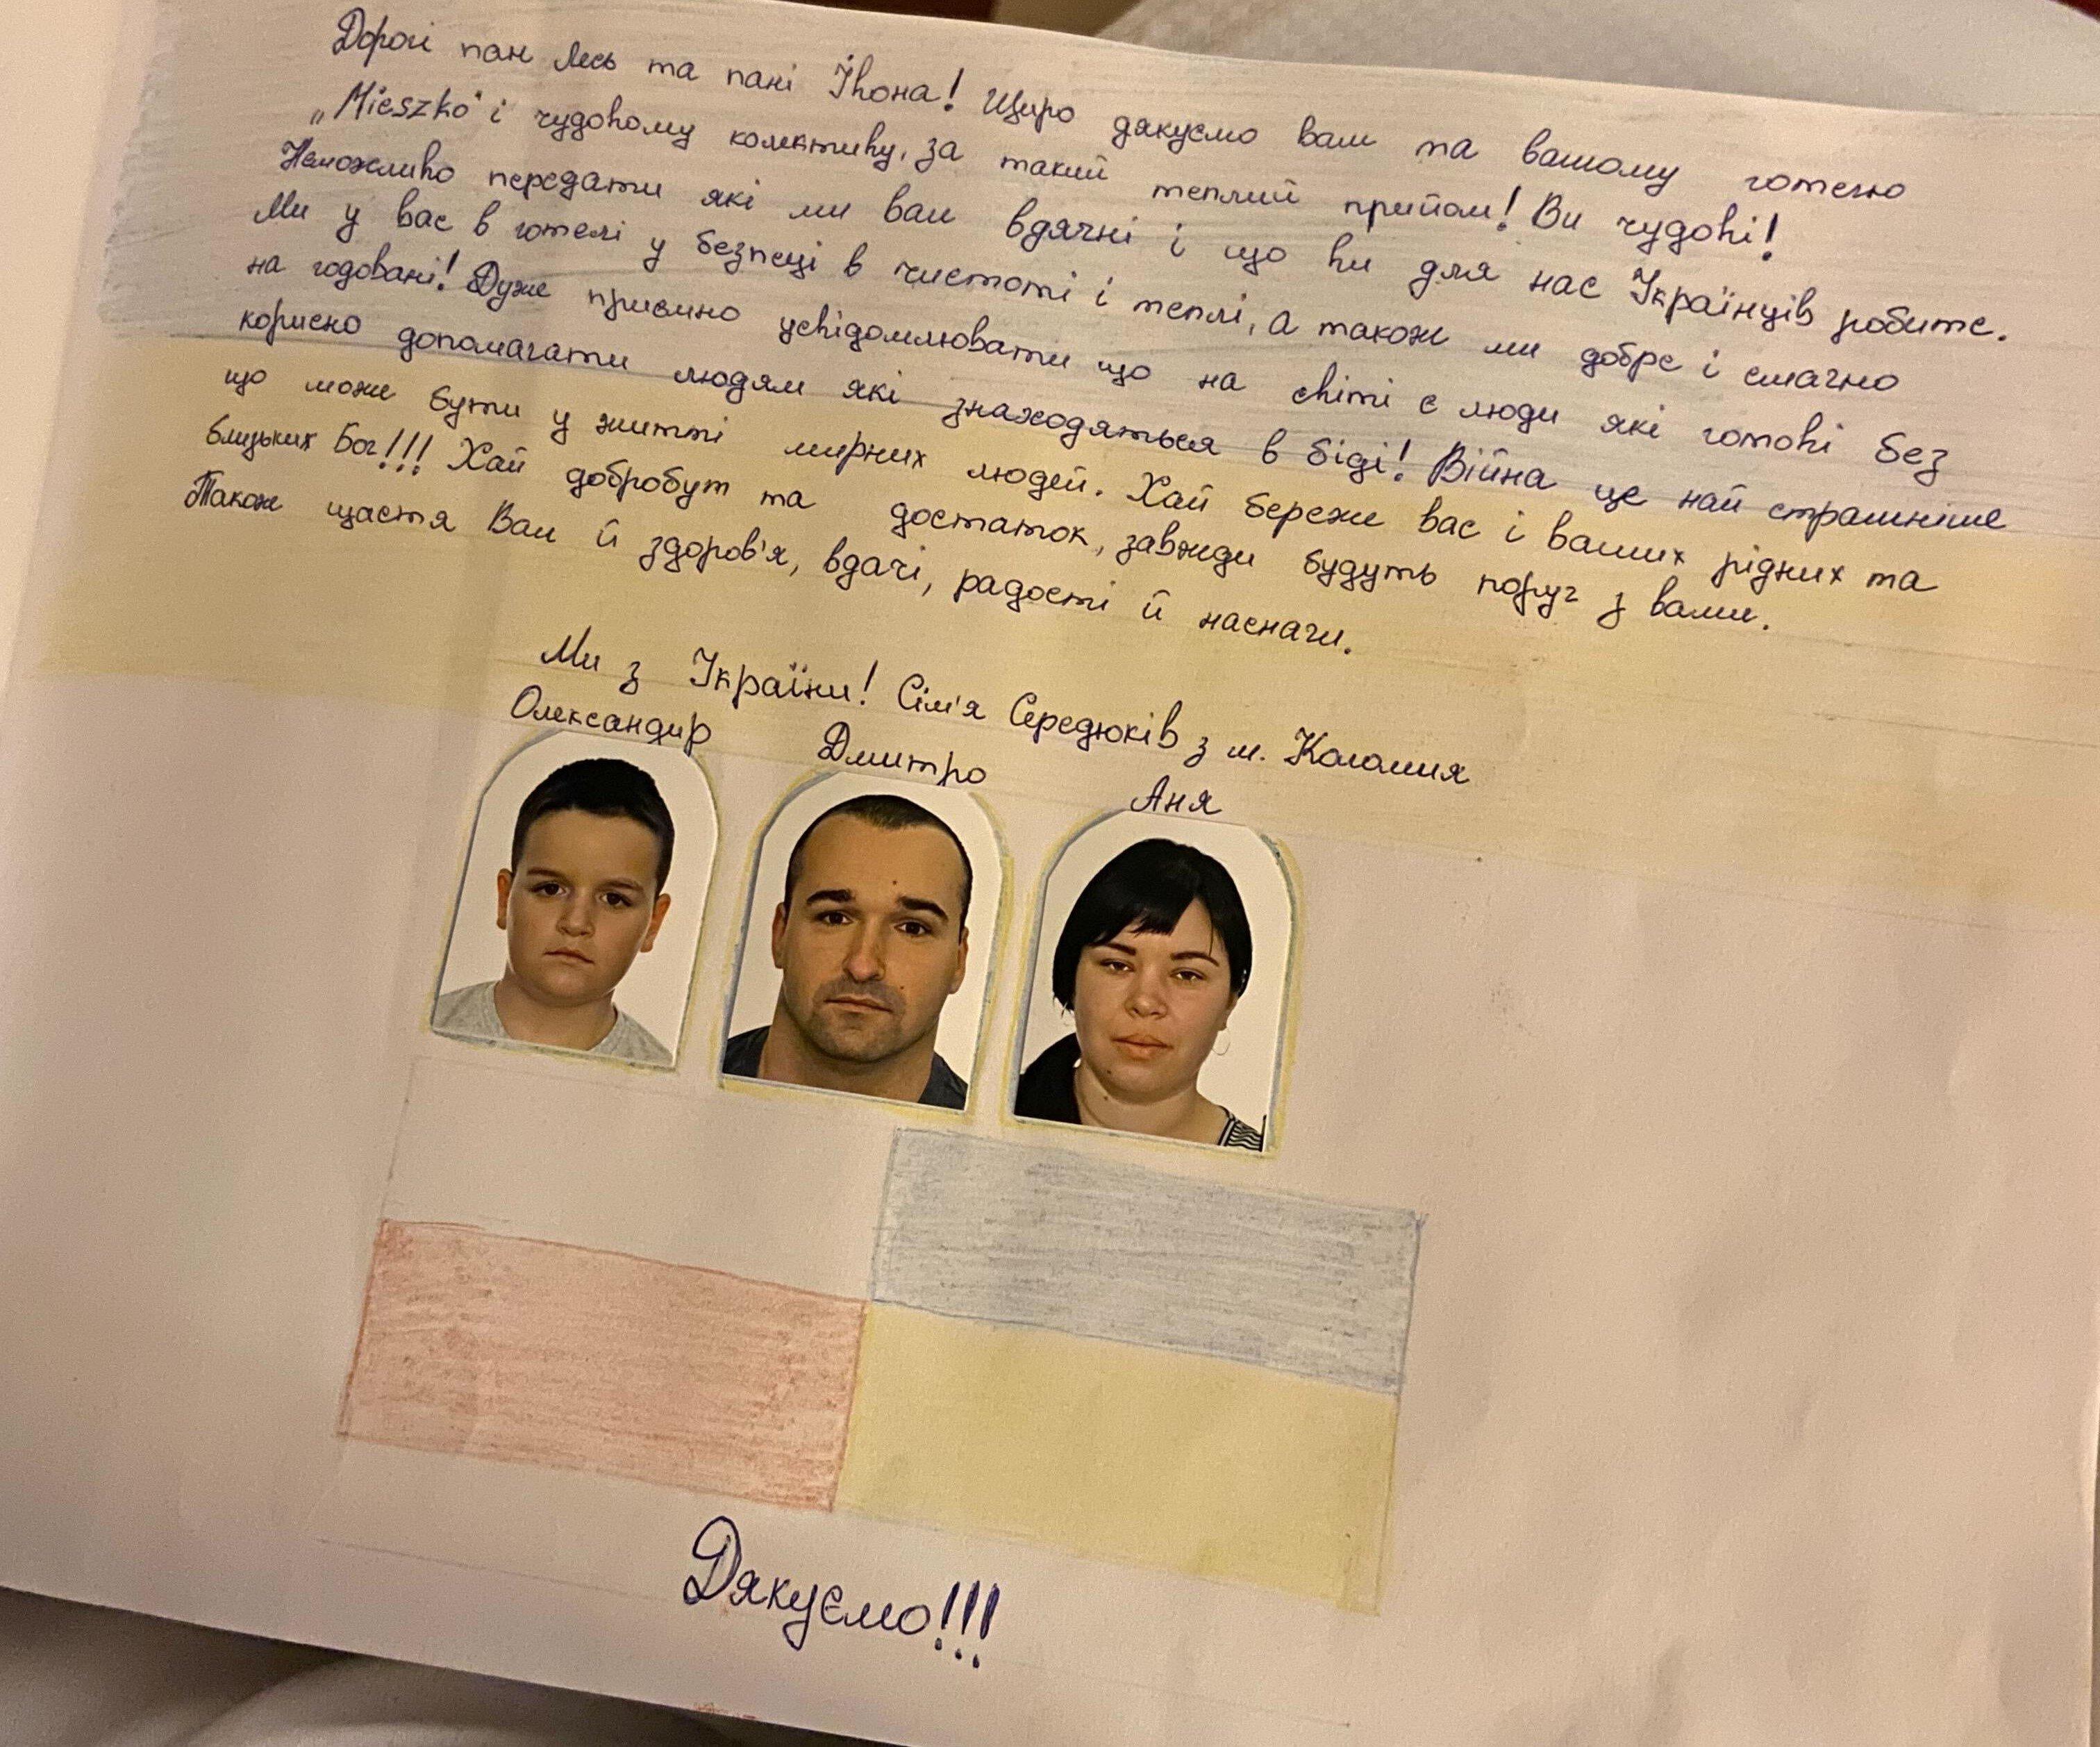 Дорогі пан Лесь та пані Івона! Щиро дякуємо вам та вашому готелю
„Mieszko" і чудовому колективу, за такий теплий прийом! Ви чудові!
Неможливо передати які ми вам вдячні і що ви для нас Українців робите.
Ми у вас в готелі у безпеці в чистоті і теплі, а також ми добре і смачно
на годовані! Дуже приємно усвідомлювати що на світі є люди які готові без
корисно допомагати людям які знаходяться в біді! Війна це най страшніше
що може бути у житті мирних людей. Хай береже вас і ваших рідних та
близьких Бог!!! Хай добробут та достаток, завжди будуть поруч з вами.
Також щастя Вам й здоров'я, вдачі, радості й наснаги.
Ми з України! Сім'я Середюків з м. Коломия
Олександир Дмитро Аня
Дякуємо!!!